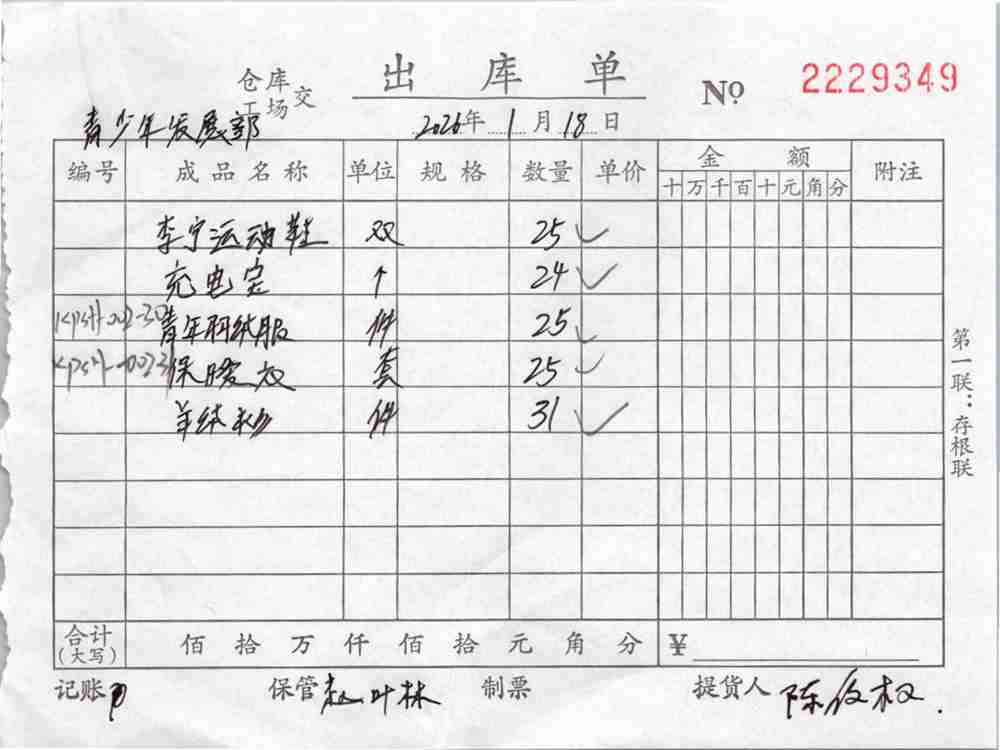 出库单
仓库
工场 交
No 2229349
青少年发展部
2026年1月18日
编号 成品名称 单位 规格 数量 单价 金额 附注
十万千百十元角分
李宁运动鞋 双 25 ✓
充电宝 个 24 ✓
青年羽绒服 件 25 ✓
保暖衣 套 25 ✓
羊绒衫 件 31 ✓
第一联：存根联
合计
(大写) 佰拾万仟佰拾元角分 ¥
记账 保管 赵叶林 制票 提货人 陈俊权